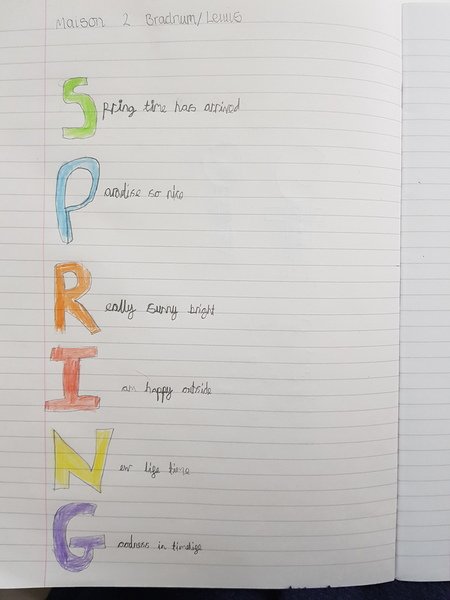 Maison 2 Bradnum/Lewis
Spring time has arrived
Paradise so nice
Really sunny bright
I am happy outside
New life time
Goodness in